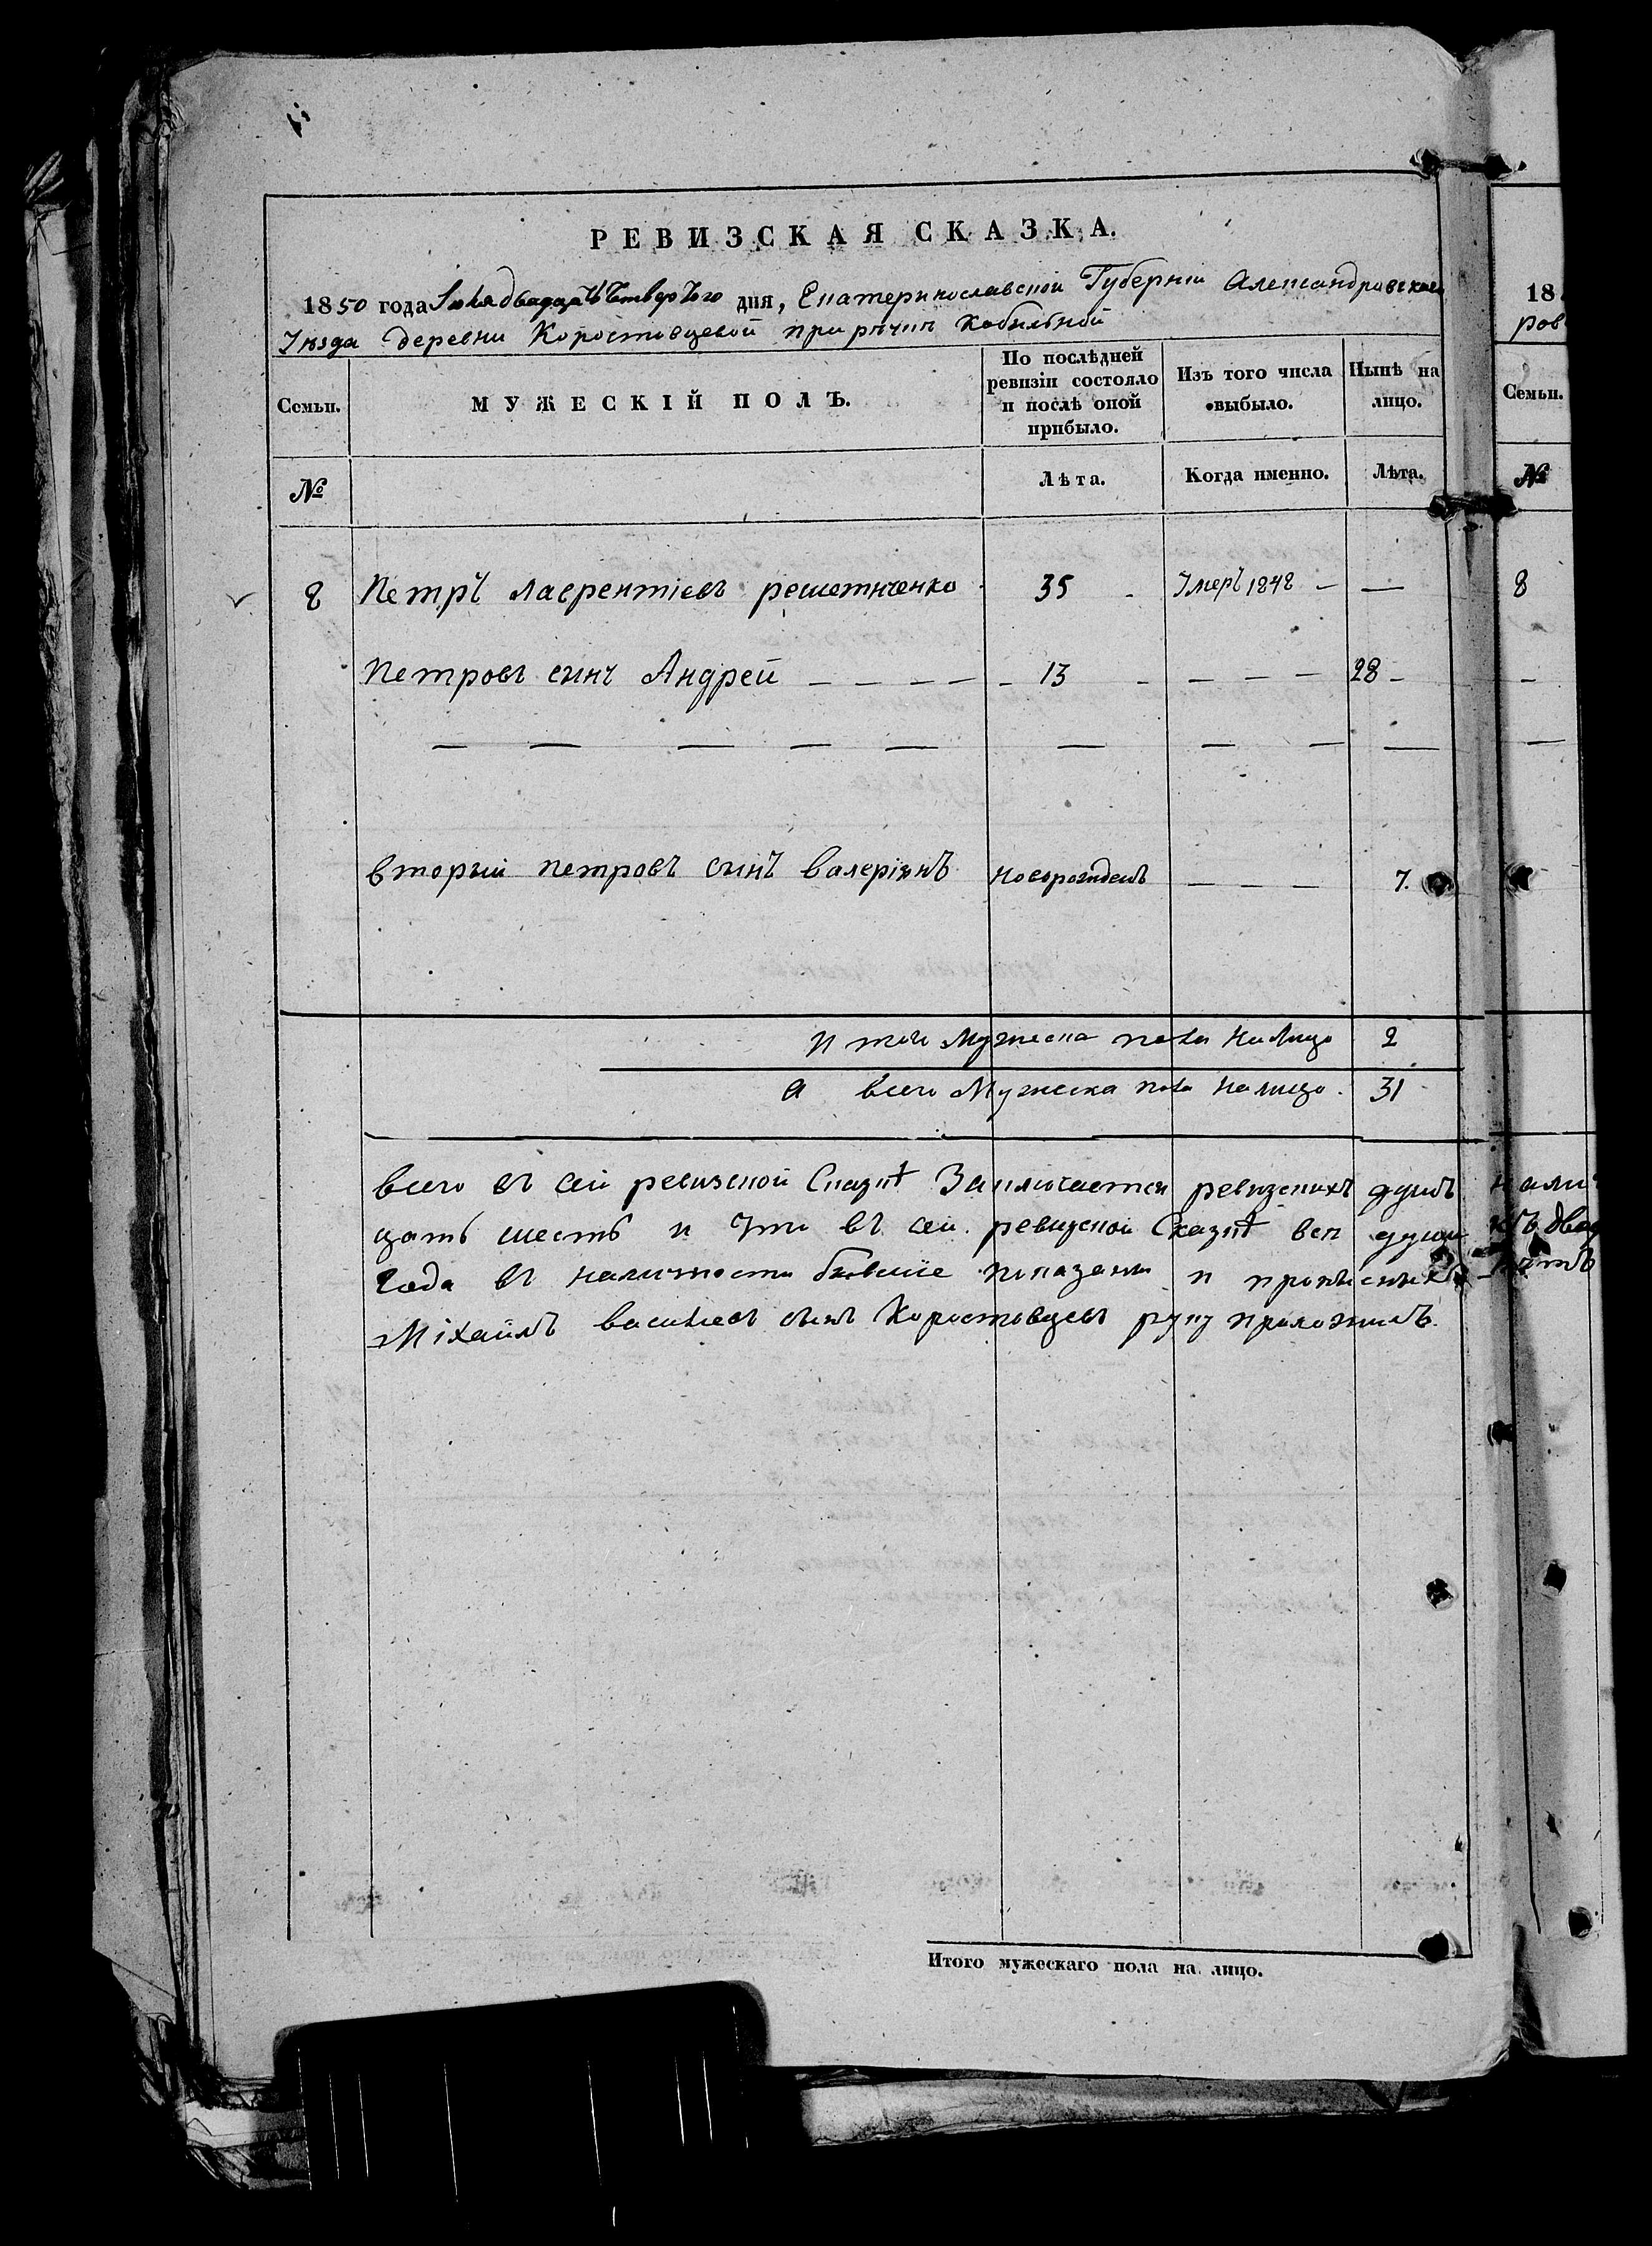 РЕВИЗСКАЯ СКАЗКА.
1850 года Июля двадцать четвертого дня, Екатеринославской Губерніи Александровскаго
Уѣзда деревни Коростовцевой при рѣчкѣ Кобыльной
Семьи.
МУЖЕСКІЙ ПОЛЪ.
По послѣдней ревизіи состояло и послѣ оной прибыло.
Изъ того числа выбыло.
Нынѣ на лицо.
№
Лѣта.
Когда именно.
Лѣта.
8 Петръ лаврентіевъ решетнченко 35 Умеръ 1848 — —
Петровъ сынъ Андрей 13 28
вторый петровъ сынъ валеріянъ новорожденъ 7.
Итого Мужеска пола на Лицо 2
а всего Мужеска пола на лицо. 31
всего въ сей ревизской Сказкѣ Заключается ревизскихъ душъ
цать шесть и Что въ сей ревизской Сказкѣ всѣ души
года въ наличности бывшіе показаны и
Міхаилъ васильевъ сынъ Коростовцевъ руку приложилъ.
Итого мужескаго пола на лицо.
18
ров
Семьи.
№
8
нали
два